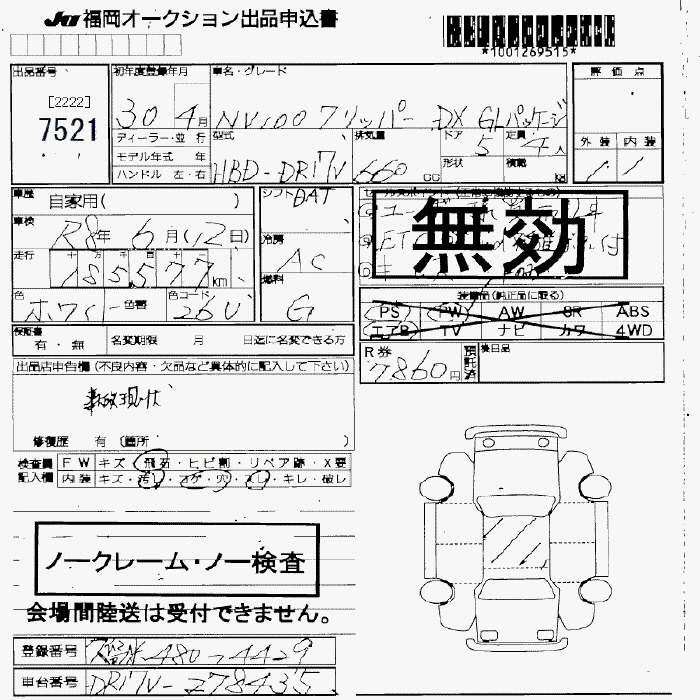 JU 福岡オークション出品申込書
*1001269515*
出品番号 初年度登録年月 車名・グレード 評価点
[2222]
7521
30 4月 NV100クリッパー DX GLパッケージ
ディーラー・並行 型式 排気量 ドア 定員 外装 内装
モデル年式 年 5 4人
ハンドル 左・右 HBD-DR17V 660 CC 形状 積載 kg
車歴 自家用( ) シフト DAT セールスポイント
無効
車検 R8年 6月(12日) 冷房 AC
走行 185577 km 燃料 G
色 ホワイト 色替 色コード 26U
装備品(純正品に限る)
PS PW AW SR ABS
エアB TV ナビ カワ 4WD
保証書 有・無 名変期限 月 日迄に名変できる方
R券 7860円 預託済 後日品
出品店申告欄(不良内容・欠品など具体的に記入して下さい)
事故現状
修復歴 有 (箇所 )
検査員 FW キズ・飛石・ヒビ割・リペア跡・X要
記入欄 内装 キズ・汚レ・コゲ・穴・スレ・キレ・破レ
ノークレーム・ノー検査
会場間陸送は受付できません。
登録番号 480 44-9
車台番号 DR17V-278435